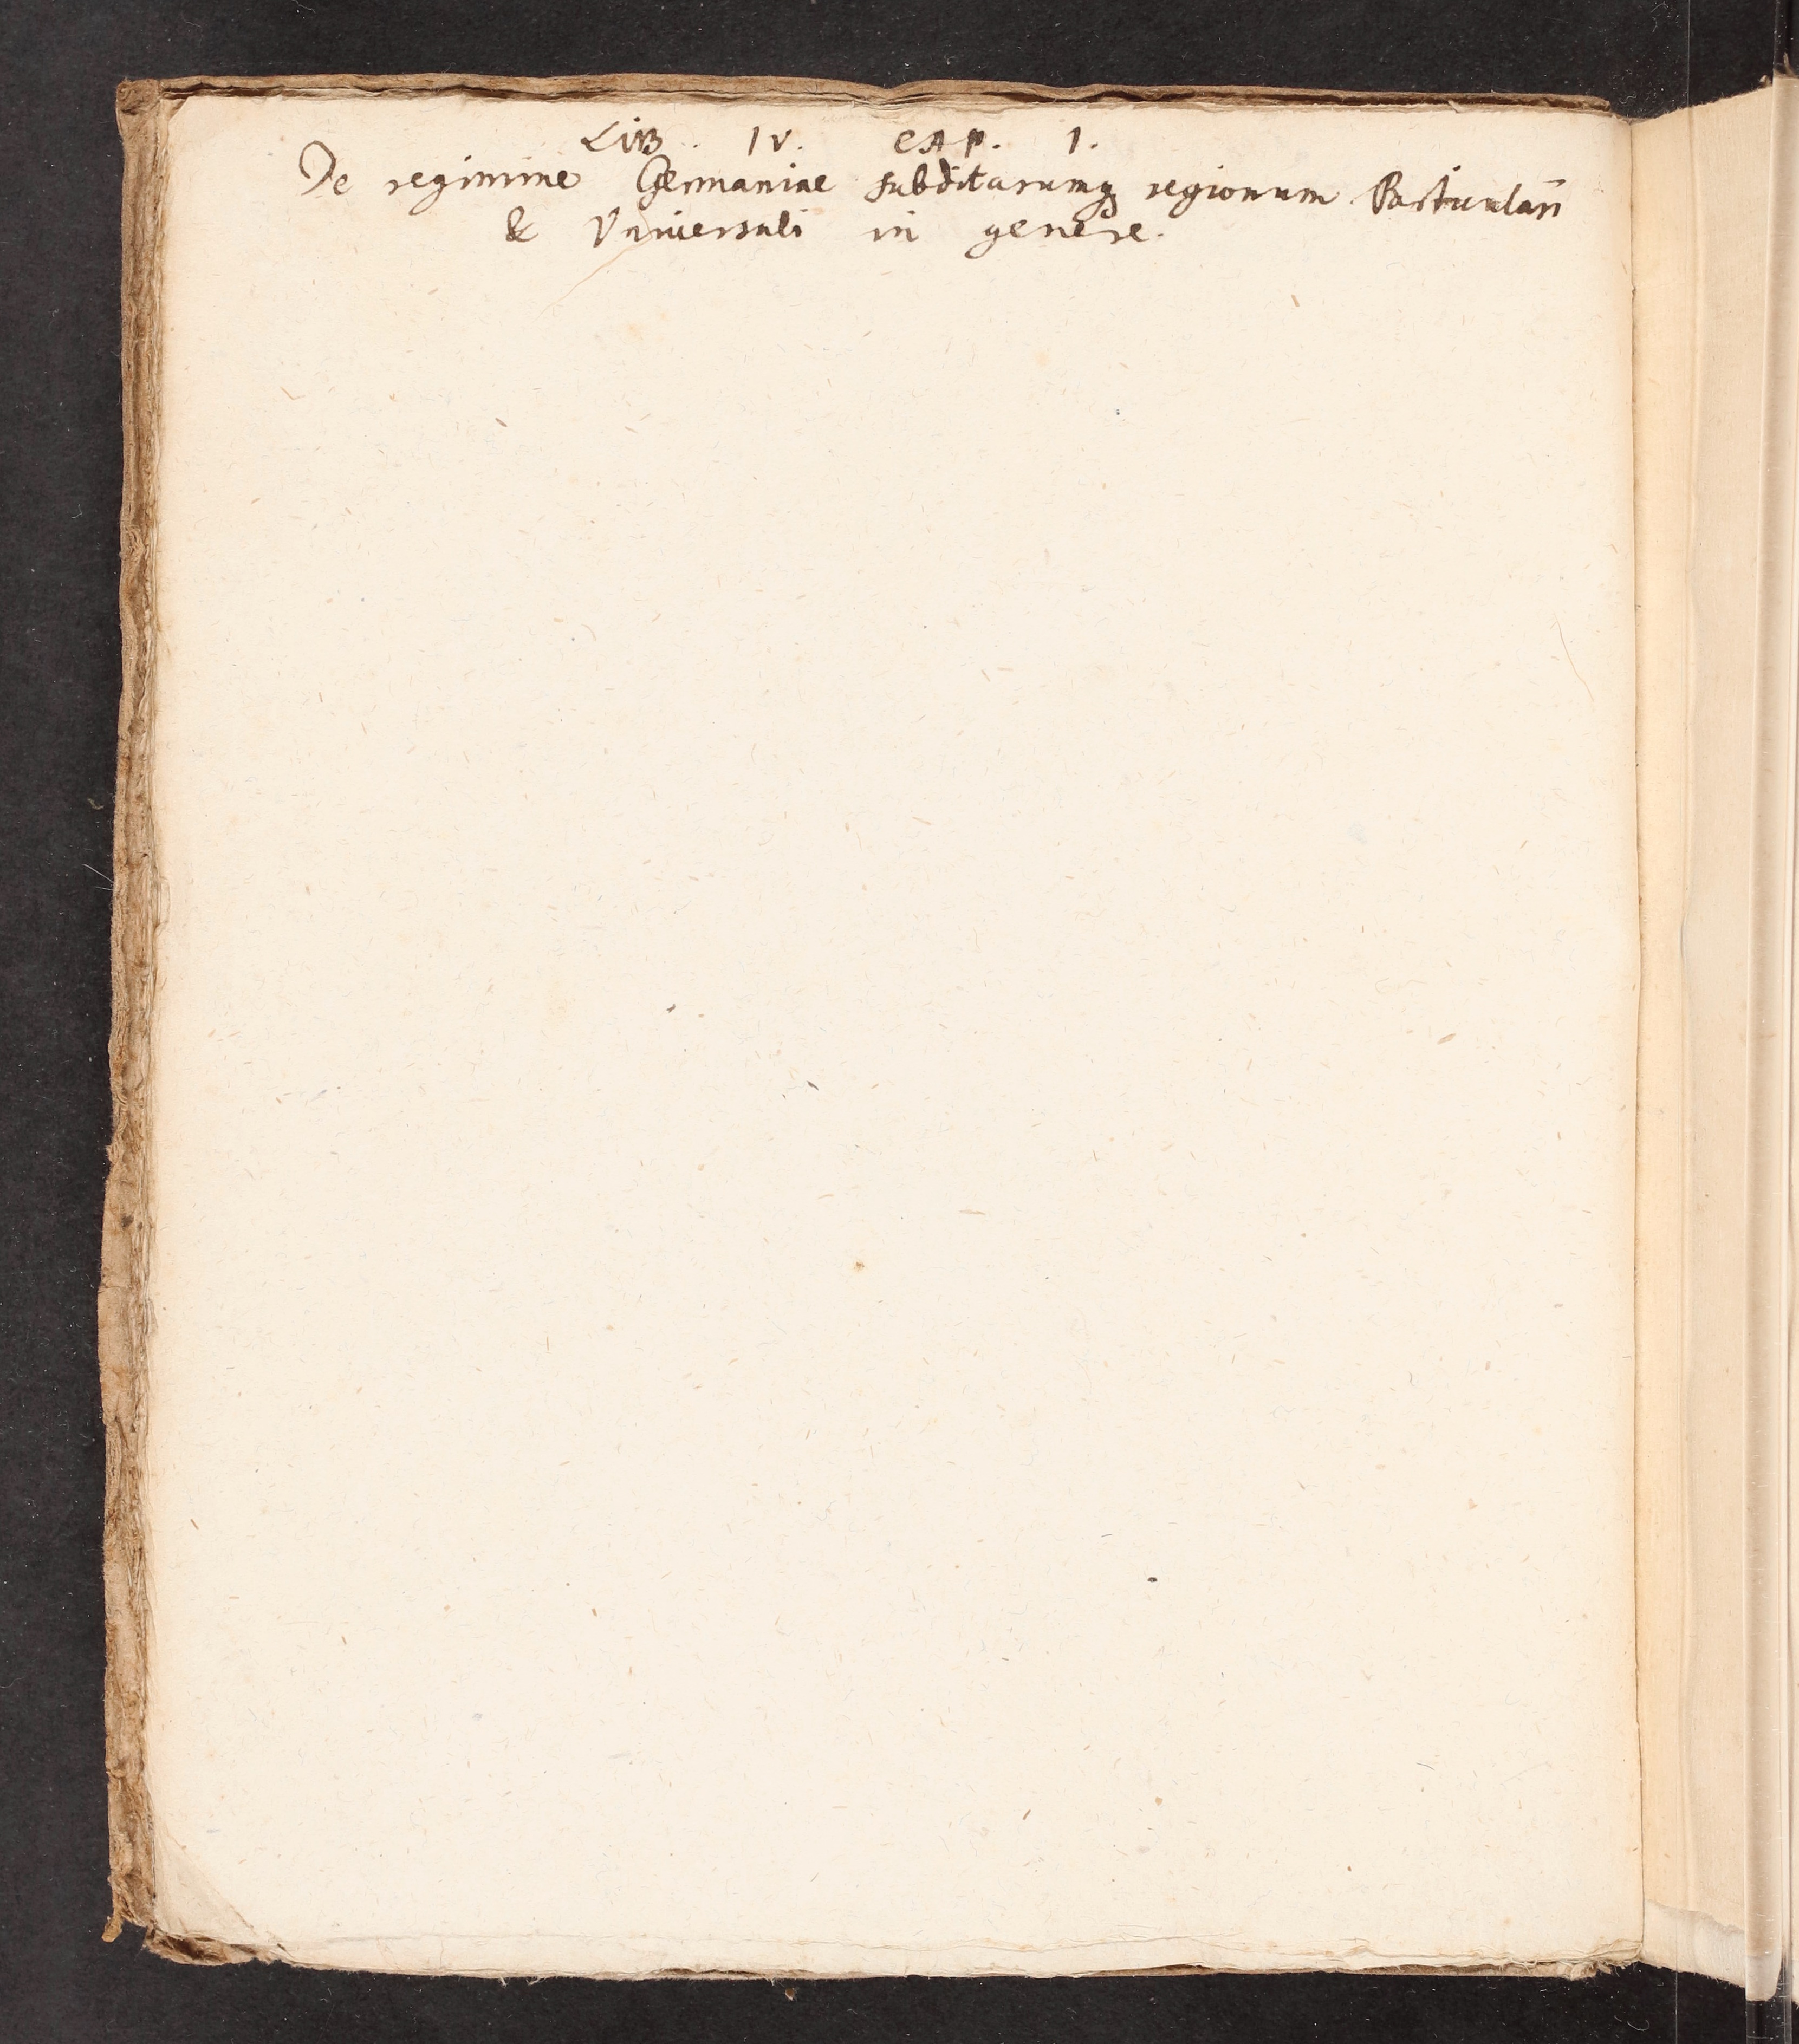 LIB. IV. CAP. 1.
De regimine Germaniae subditarumq; regionum Particulari
& Universali in genere.